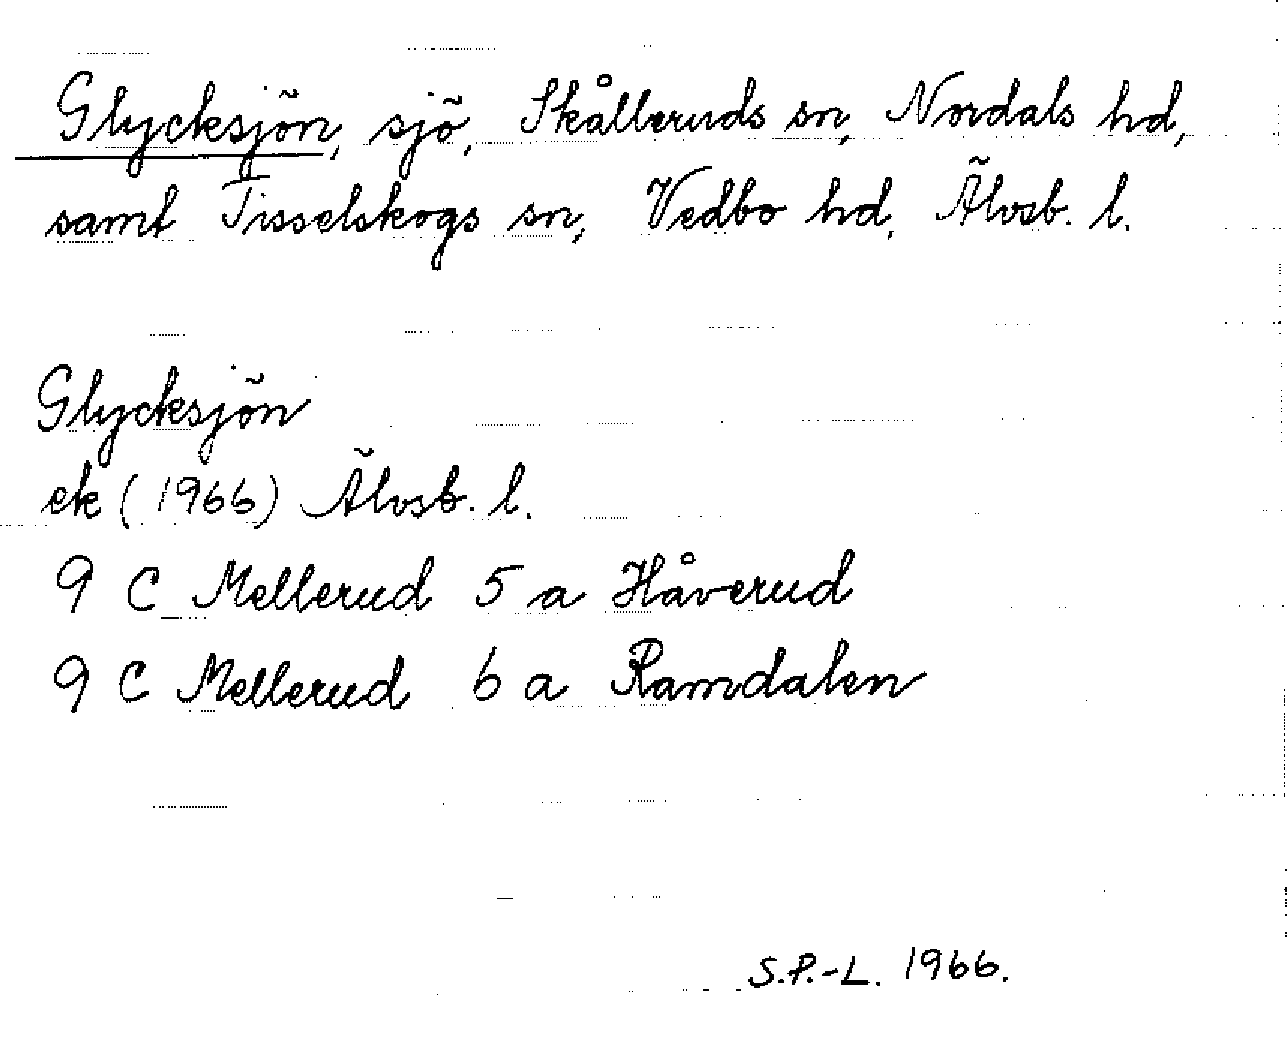 Glycksjön, sjö, Skålleruds sn, Nordals hd,
samt Tisselskogs sn, Vedbo hd, Älvsb. l.
Glycksjön
ek (1966) Älvsb. l.
9 C Mellerud 5 a Håverud
9 C Mellerud 6 a Ramdalen
S.P.-L. 1966.